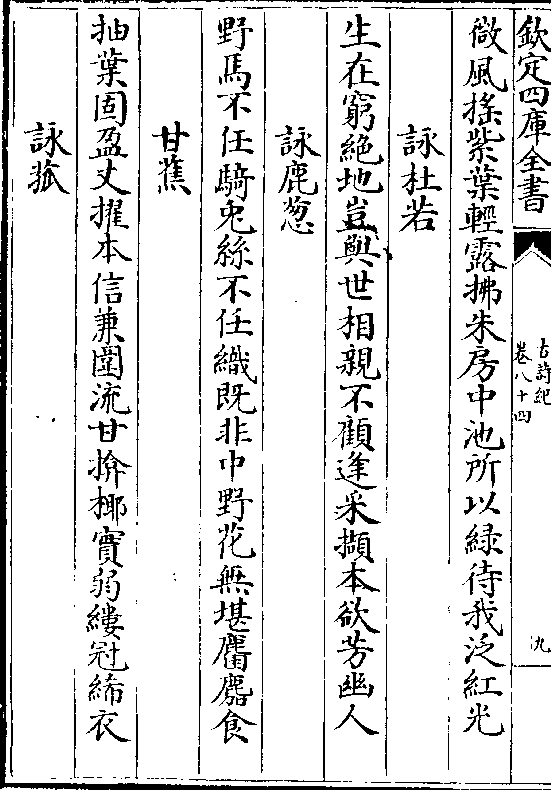 欽定四庫全書
古詩紀
卷八十四
九
微風揺紫葉輕露拂朱房中池所以緑待我泛紅光
詠杜若
生在窮絶地豈與世相親不顧逢采擷本欲芳幽人
詠鹿葱
野馬不任騎兎絲不任織既非中野花無堪麕麚食
甘蕉
抽葉固盈丈擢本信兼圍流甘揜椰實弱縷冠絺衣
詠菰